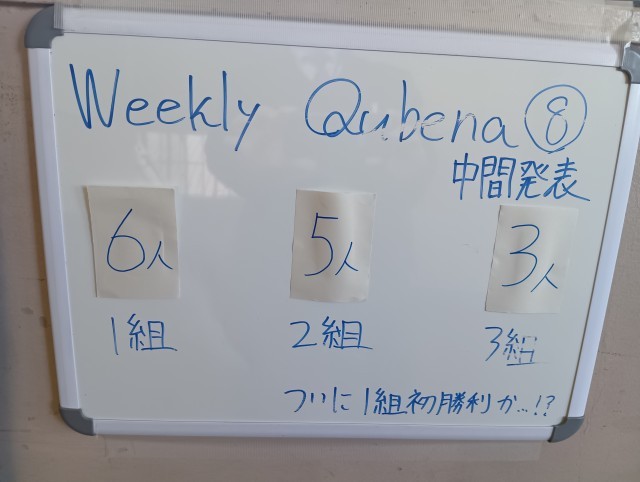 Weekly Qubena ⑧
中間発表
6人 5人 3人
1組 2組 3組
ついに1組初勝利か…!?